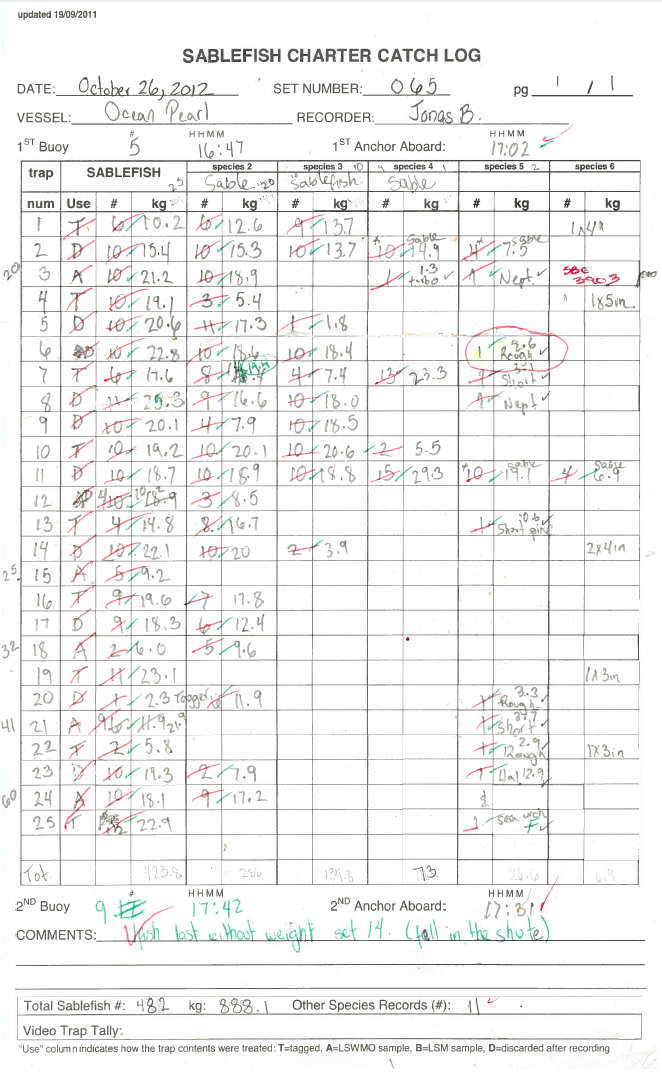 updated 19/09/2011
SABLEFISH CHARTER CATCH LOG
DATE: October 26, 2012 SET NUMBER: 065 pg 1 / 1
VESSEL: Ocean Pearl RECORDER: Jonas B.
# HHMM HHMM
1ST Buoy 5 16:47 1ST Anchor Aboard: 17:02
trap SABLEFISH species 2 species 3 species 4 species 5 species 6
25 Sable Sablefish Sable
num Use # kg # kg # kg # kg # kg # kg
1 T 6 10.2 6 12.6 9 13.7 1x4"
2 D 10 15.4 10 15.3 10 13.7 10 Sable 14.9 4 Sable 7.5
20 3 A 10 21.2 10 18.9 1 1.3 turbo 1 Nept SBE 3903
4 T 10 19.1 3 5.4 1x5in
5 D 10 20.6 11 17.3 1 1.8
6 D 10 22.8 10 18.6 10 18.4 1 2.6 Rough
7 T 6 17.6 8 14.4 4 7.4 13 23.3 Short
8 D 11 25.3 9 16.6 10 18.0 1 Nept
9 D 10 20.1 4 7.9 10 18.5
10 T 10 19.2 10 20.1 10 20.6 2 5.5
11 D 10 18.7 10 18.9 10 18.8 15 29.3 10 Sable 19.1 4 Sable 6.9
12 10 18.9 3 8.5
13 T 4 14.8 8 16.7 1 Short
14 D 10 22.1 10 20 2 3.9 2x4in
25 15 A 5 9.2
16 T 9 19.6 7 17.8
17 D 9 18.3 6 12.4
32 18 A 2 6.0 5 9.6
19 T 11 23.1 1x3in
20 D 1 2.3 11.9 1 3.3 Rough
41 21 A 1 Short
22 T 2 5.8 1 2.9 Rough 1x3in
23 D 10 19.3 2 7.9 1 Hal 12.9
60 24 A 10 18.1 9 17.2
25 T 22.9 1 sea urch
Tot. 423.8 288 134.8 73 26.6 6.9
# HHMM HHMM
2ND Buoy 9 17:42 2ND Anchor Aboard: 17:31
COMMENTS: fish lost without weight set 14. (fall in the shute)
Total Sablefish #: 482 kg: 888.1 Other Species Records (#): 11
Video Trap Tally:
"Use" column indicates how the trap contents were treated: T=tagged, A=LSWMO sample, B=LSM sample, D=discarded after recording